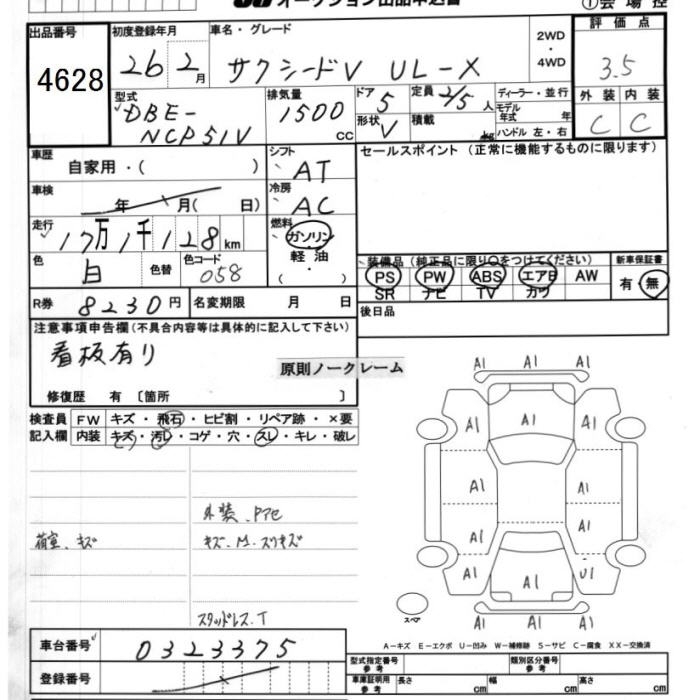 オークション出品申込書 ①会場控
出品番号 初度登録年月 車名・グレード 2WD・4WD 評価点
4628 26 2月 サクシードV UL-X 3.5
型式 排気量 ドア 定員 ディーラー・並行 外装 内装
DBE-NCP51V 1500cc 5 2/5人 モデル年式 年 C C
形状 V 積載 kg ハンドル 左・右
車歴 自家用・( ) シフト AT セールスポイント (正常に機能するものに限ります)
車検 年 月( 日) 冷房 AC
走行 17万1千128km 燃料 ガソリン 軽油 ( ・ )
色 白 色替 色コード 058
装備品 (純正品に限り○をつけてください) 新車保証書
PS PW ABS エアB AW 有・無
SR ナビ TV カワ
R券 8230円 名変期限 月 日 後日品
注意事項申告欄(不具合内容等は具体的に記入して下さい)
看板有り
原則ノークレーム
修復歴 有 〔箇所 〕
検査員 FW キズ・飛石・ヒビ割・リペア跡・×要
記入欄 内装 キズ・汚レ・コゲ・穴・スレ・キレ・破レ
外装、Pアセ
荷室、キズ キズ、M、スリキズ
スタッドレス、T
A1 A1 A1
A1 A1 A1
A1 A1
A1 A1
A1 A1 U1
A1 A1 A1
スペア
A-キズ E-エクボ U-凹み W-補修跡 S-サビ C-腐食 XX-交換済
車台番号 0323375
登録番号
型式指定番号 参考 類別区分番号 参考
車庫証明用 参考 長さ cm 幅 cm 高さ cm